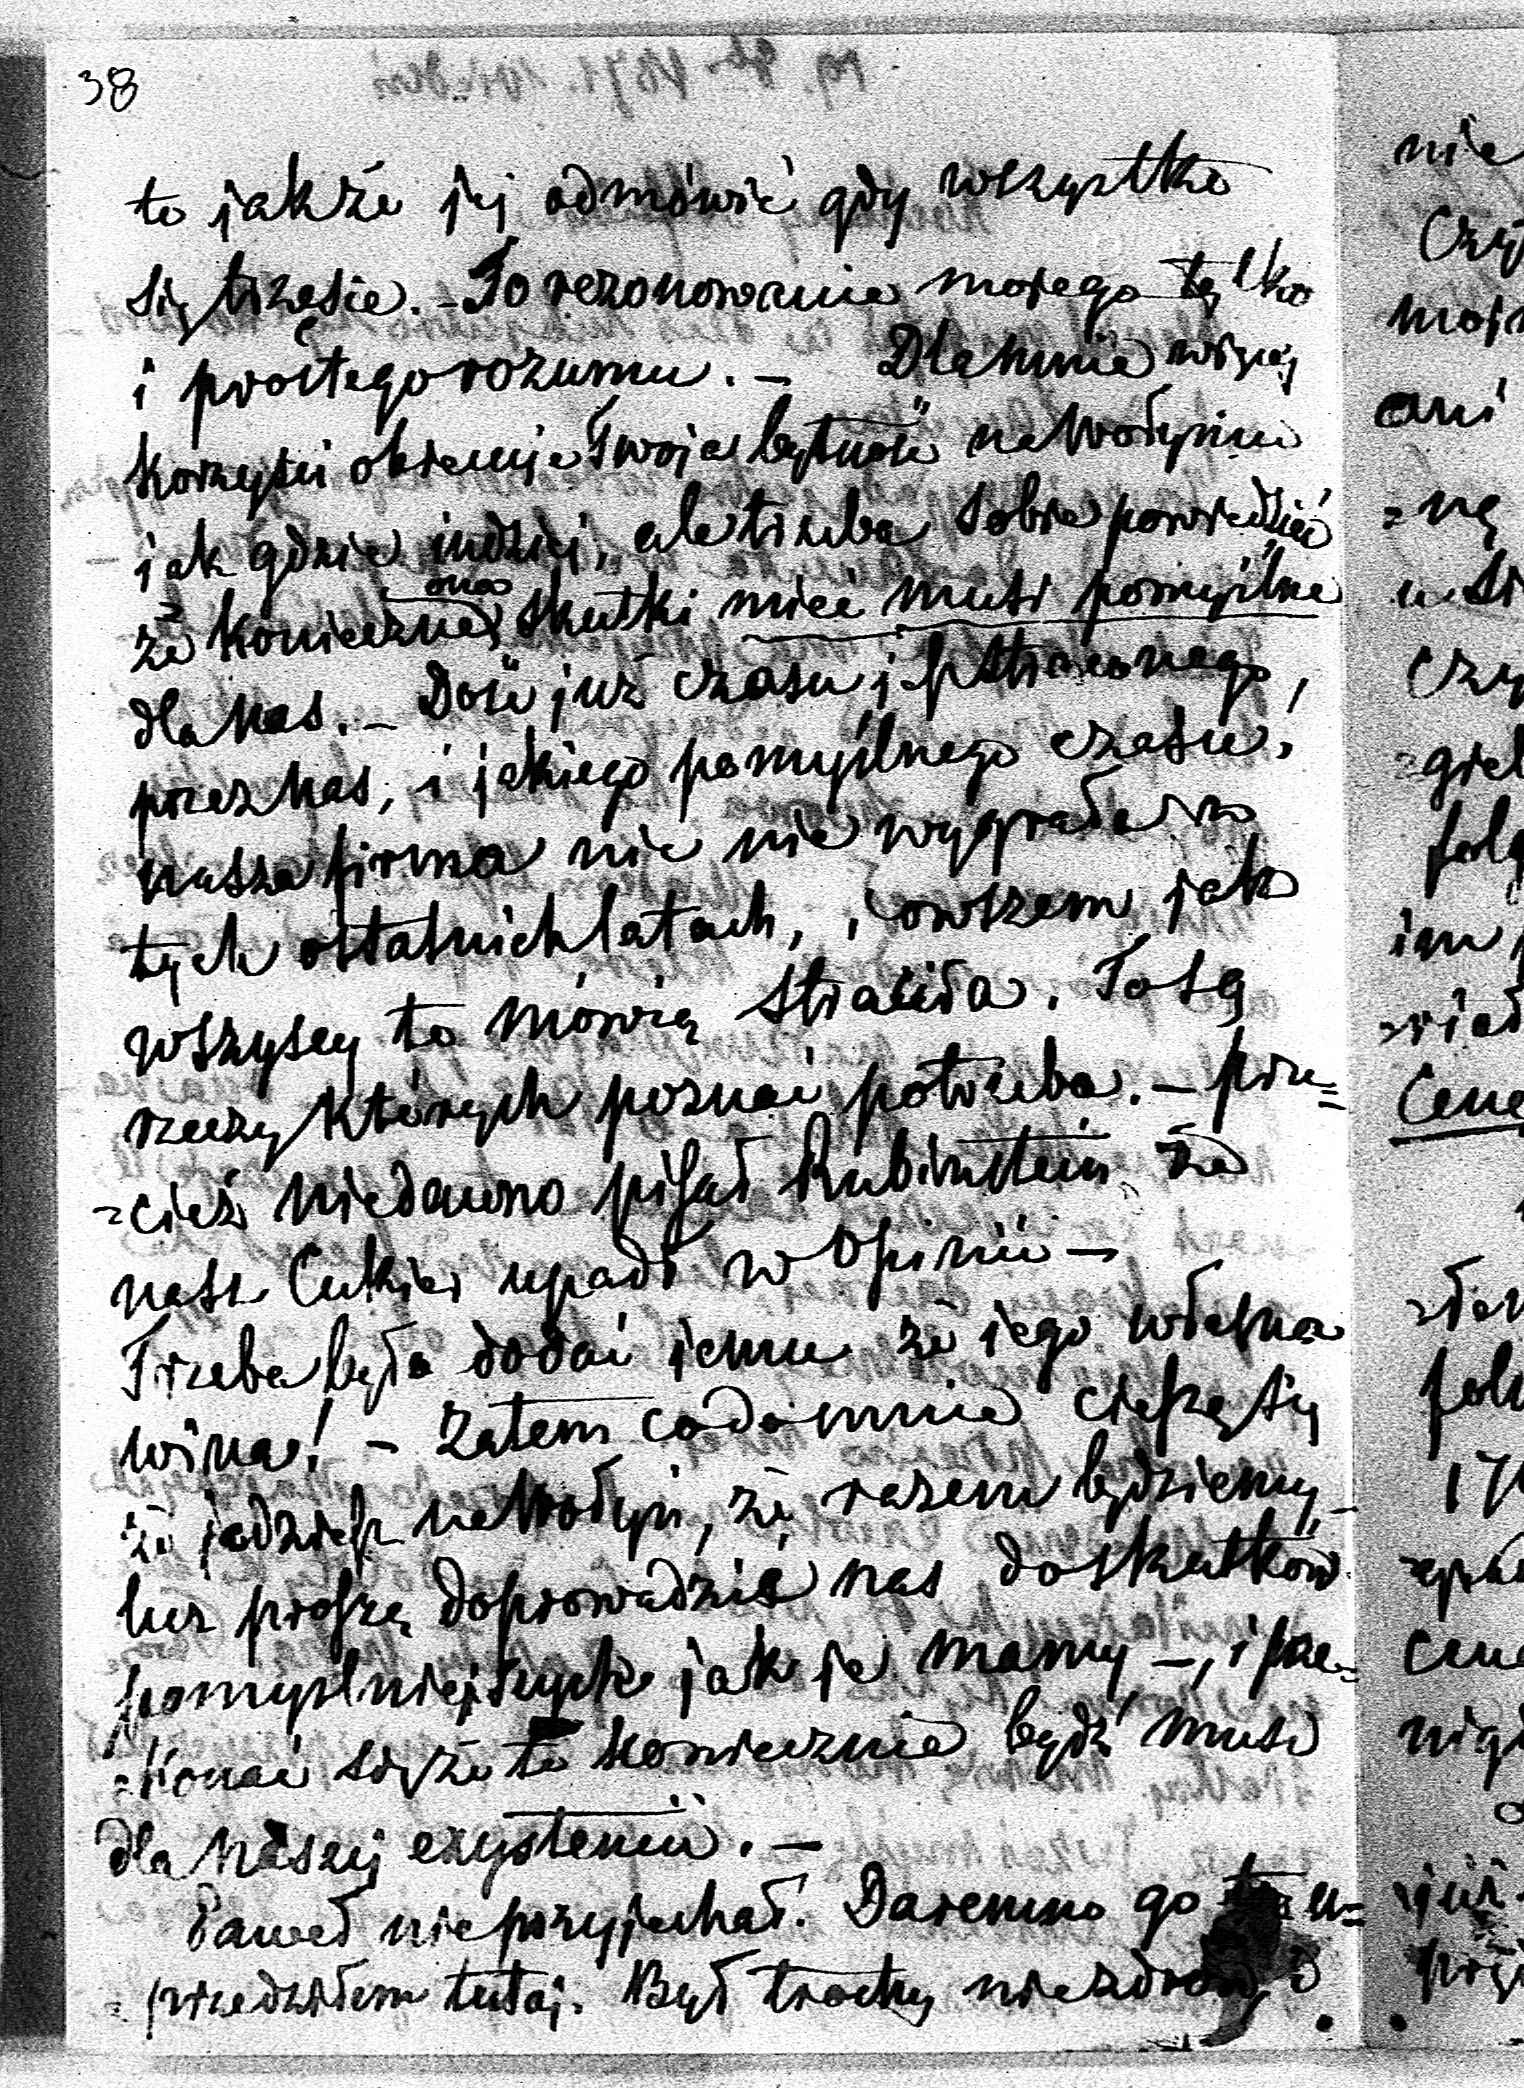 38
to jakże jej odmówić gdy wszystko
się trzęsie. – To rezonowanie mojego tylko
i prostego rozumu. – Dla mnie więcej
korzyści obiecuje Twoja bytność na Wołyniu
jak gdzie indziej, ale trzeba sobie powiedzieć
że koniecznie ona skutki mieć musi pomyślne
dla nas. – Dość już czasu jest straconego
przez nas, i jakiego pomyślnego czasu!
nasza firma nic nie wygrała w
tych ostatnich latach, i owszem jak
wszyscy to mówią straciła. To są
rzeczy których poznać potrzeba. – prze=
=cież niedawno pisał Rubinstein że
nasz Cukier upadł w Opinii –
Trzeba było dodać jemu że jego własna
wina! – Zatem co do mnie cieszę się
że jedziesz na Wołyń, że razem będziemy, –
lecz proszę doprowadzić nas do skutków
pomyślniejszych jak je mamy –, i prze=
=konać się że to koniecznie bydź musi
dla naszej exystencii. –
Paweł nie przyjechał. Daremno go u=
=przedziłem tutaj. Był trochę niezdrów
nie
ani
=ną
im